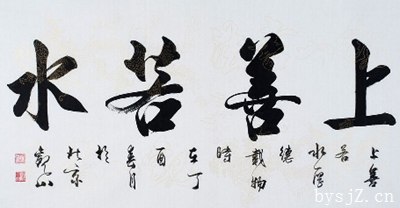 上善若水
上善
若
水厚
德
載物
時
在丁
酉
春月
於
北京
bysjZ.cn